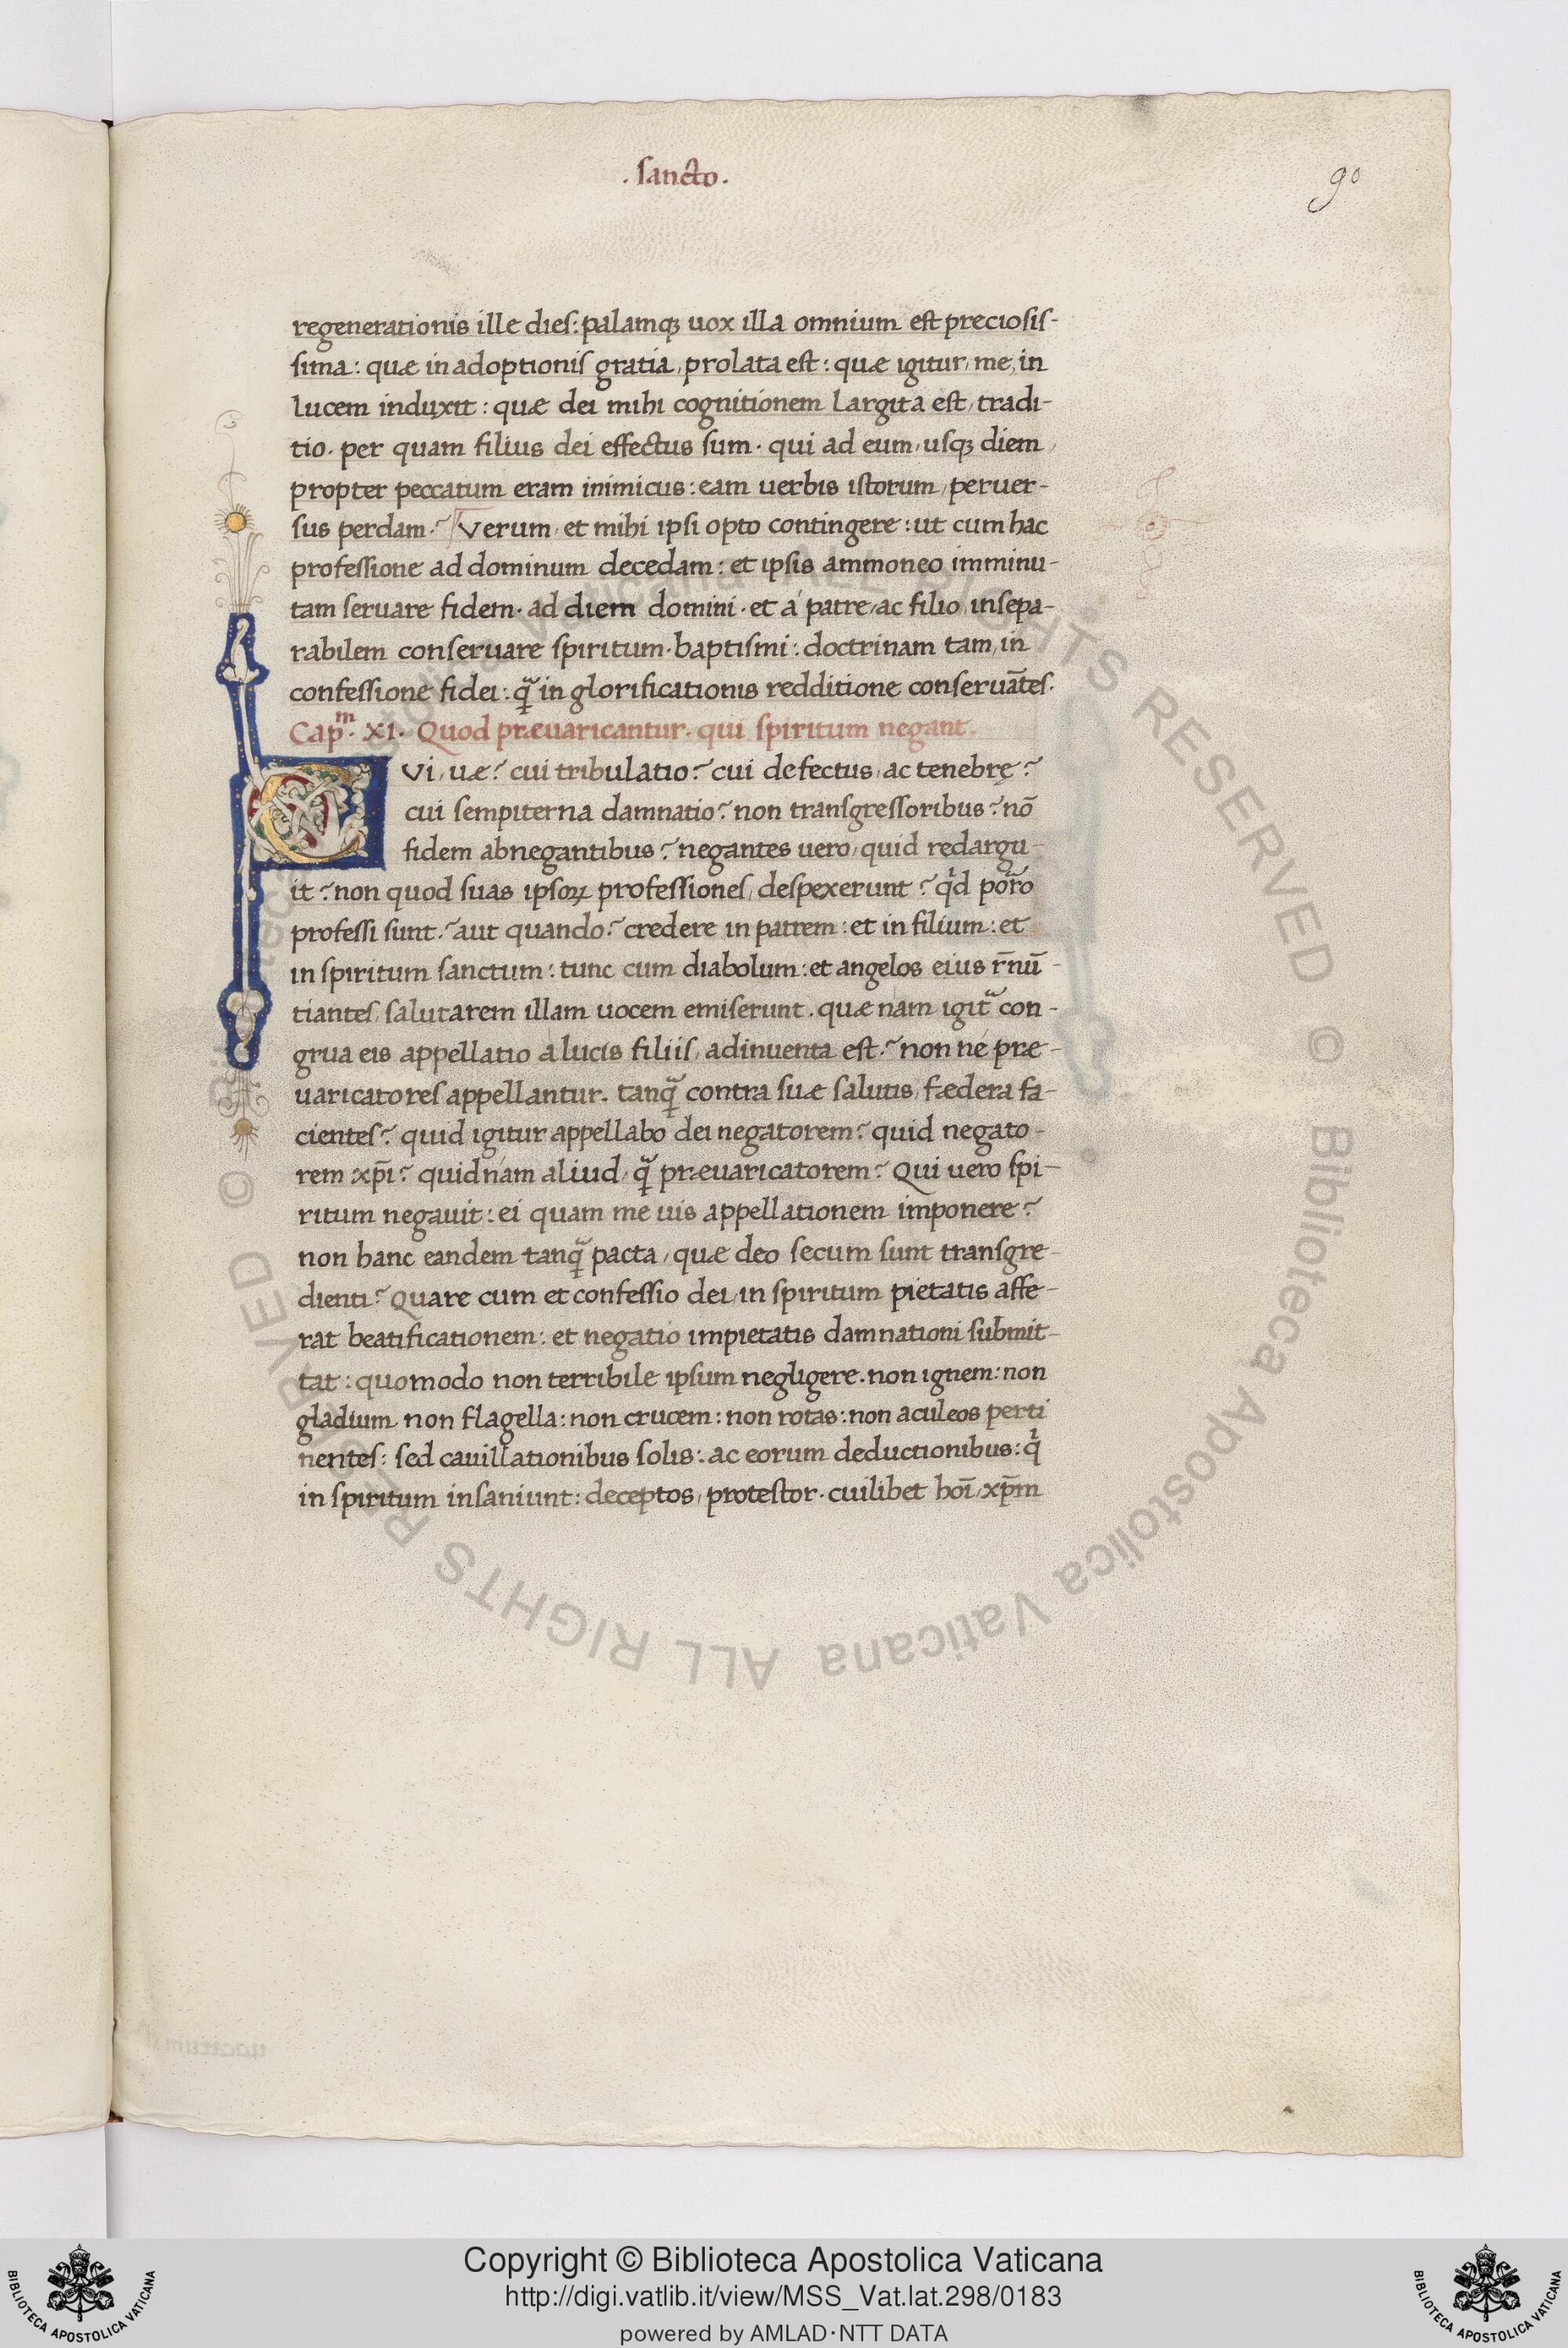 . sancto .
90
regenerationis ille dies: palamqꝫ uox illa omnium est preciosis-
sima: quæ in adoptionis gratia, prolata est: quæ igitur, me, in
lucem induxit: quæ dei mihi cognitionem largita est, tradi-
tio. per quam filius dei effectus sum. qui ad eum, usqꝫ diem,
propter peccatum eram inimicus: eam uerbis istorum, peruer-
sus perdam? Verum, et mihi ipsi opto contingere: ut cum hac
professione ad dominum decedam: et ipsis ammoneo imminu-
tam seruare fidem. ad diem domini. et á patre, ac filio, insepa-
rabilem conseruare spiritum. baptismi: doctrinam tam, in
confessione fidei: q̃ in glorificationis redditione conseruãtes.
Cap.ᵐ XI. Quod præuaricantur. qui spiritum negant.
CVi, uæ? cui tribulatio? cui defectus, ac tenebrę?
cui sempiterna damnatio? non transgressoribus? nō
fidem abnegantibus? negantes uero, quid redargu-
it? non quod suas ipsoꝝ professiones, despexerunt? qͥd porro
professi sunt? aut quando? credere in patrem: et in filium: et
in spiritum sanctum: tunc cum diabolum: et angelos eius r̄nū-
tiantes, salutarem illam uocem emiserunt. quæ nam igit᷑ con-
grua eis appellatio a lucis filiis, adinuenta est? non né præ-
uaricatores appellantur. tanq̃ contra suæ salutis, fædera fa-
cientes? quid igitur appellabo dei negatorem? quid negato-
rem xp̄i? quid nam aliud, q̃ præuaricatorem? Qui uero spi-
ritum negauit: ei quam me uis appellationem imponere?
non hanc eandem tanq̃ pacta, quæ deo secum sunt transgre-
dienti? Quare cum et confessio dei, in spiritum pietatis affe-
rat beatificationem: et negatio impietatis damnationi submit-
tat: quomodo non terribile ipsum negligere. non ignem: non
gladium non flagella: non crucem: non rotas: non aculeos perti
nentes: sed cauillationibus solis: ac eorum deductionibus: qͥ
in spiritum insaniunt: deceptos, protestor. cuilibet hoī, xp̄m
© Biblioteca Apostolica Vaticana ALL RIGHTS RESERVED © Biblioteca Apostolica Vaticana ALL RIGHTS RESERVED
BIBLIOTECA APOSTOLICA VATICANA
Copyright © Biblioteca Apostolica Vaticana
http://digi.vatlib.it/view/MSS_Vat.lat.298/0183
powered by AMLAD·NTT DATA
BIBLIOTECA APOSTOLICA VATICANA